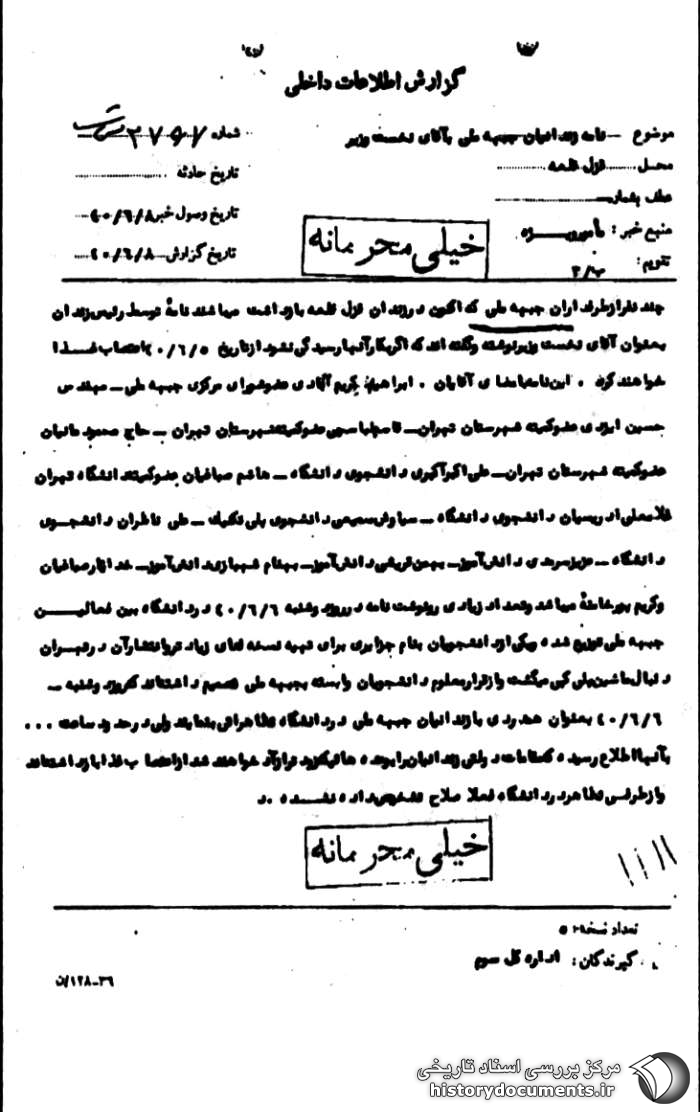 گزارش اطلاعات داخلی
موضوع - نامه زندانیان جبهه ملی بآقای نخست وزیر
شماره ۲۷۵۰۷
محل ..... قزل قلعه
تاریخ حادثه
عطف بشماره
تاریخ وصول خبر ۴۰/۶/۸
منبع خبر : مأمور ویژه
تاریخ گزارش ۴۰/۶/۸
خیلی محرمانه
تقویم :
چند نفر از طرفداران جبهه ملی که اکنون در زندان قزل قلعه بازداشت میباشند نامهٔ توسط رئیس زندان
بعنوان آقای نخست وزیر نوشته و گفته اند که اگر بکار آنها رسیدگی نشود از تاریخ ۴۰/۶/۵ اعتصاب غذا
خواهند کرد . این نامه بامضای آقایان . ابراهیم کریم آبادی عضو شورای مرکزی جبهه ملی - مهندس
حسین ایزدی عضو کمیته شهرستان تهران - عضو کمیته شهرستان تهران - حاج محمود مانیان
عضو کمیته شهرستان تهران - علی اکبر اکبری دانشجوی دانشگاه - هاشم صباغیان عضو کمیته دانشگاه تهران
دانشجوی دانشگاه - سیاوش دانشجوی پلی تکنیک - علی دانشجوی
دانشگاه - عزیز سرمدی دانش آموز - بهمن دانش آموز - بهنام دانش آموز - صباغیان
و کریم میباشد و تعداد زیادی رونوشت نامه در روز دوشنبه ۴۰/۶/۶ در دانشگاه بین فعالین
جبهه ملی توزیع شده و یکی از دانشجویان بنام جزایری برای تهیه نسخه های زیاد تر و انتشار آن در تهران
دنبال ماشین پلی کپی میگشت و از قرار معلوم دانشجویان وابسته بجبهه ملی تصمیم داشتند که روز دوشنبه -
۴۰/۶/۶ بعنوان همدردی با زندانیان جبهه ملی در دانشگاه تظاهراتی بنمایند ولی در حدود ساعت ...
بآنها اطلاع رسیده که مقامات دولتی زندانیان را آزاد خواهند شد از اعتصاب غذا باز داشتند
و از طرفی تظاهر در دانشگاه فعلا صلاح تشخیص داده نشده . د
خیلی محرمانه
تعداد نسخه ۵
گیرندگان : اداره کل سوم
۳۶-۱۲۸/ن
مرکز بررسی اسناد تاریخی
historydocuments.ir